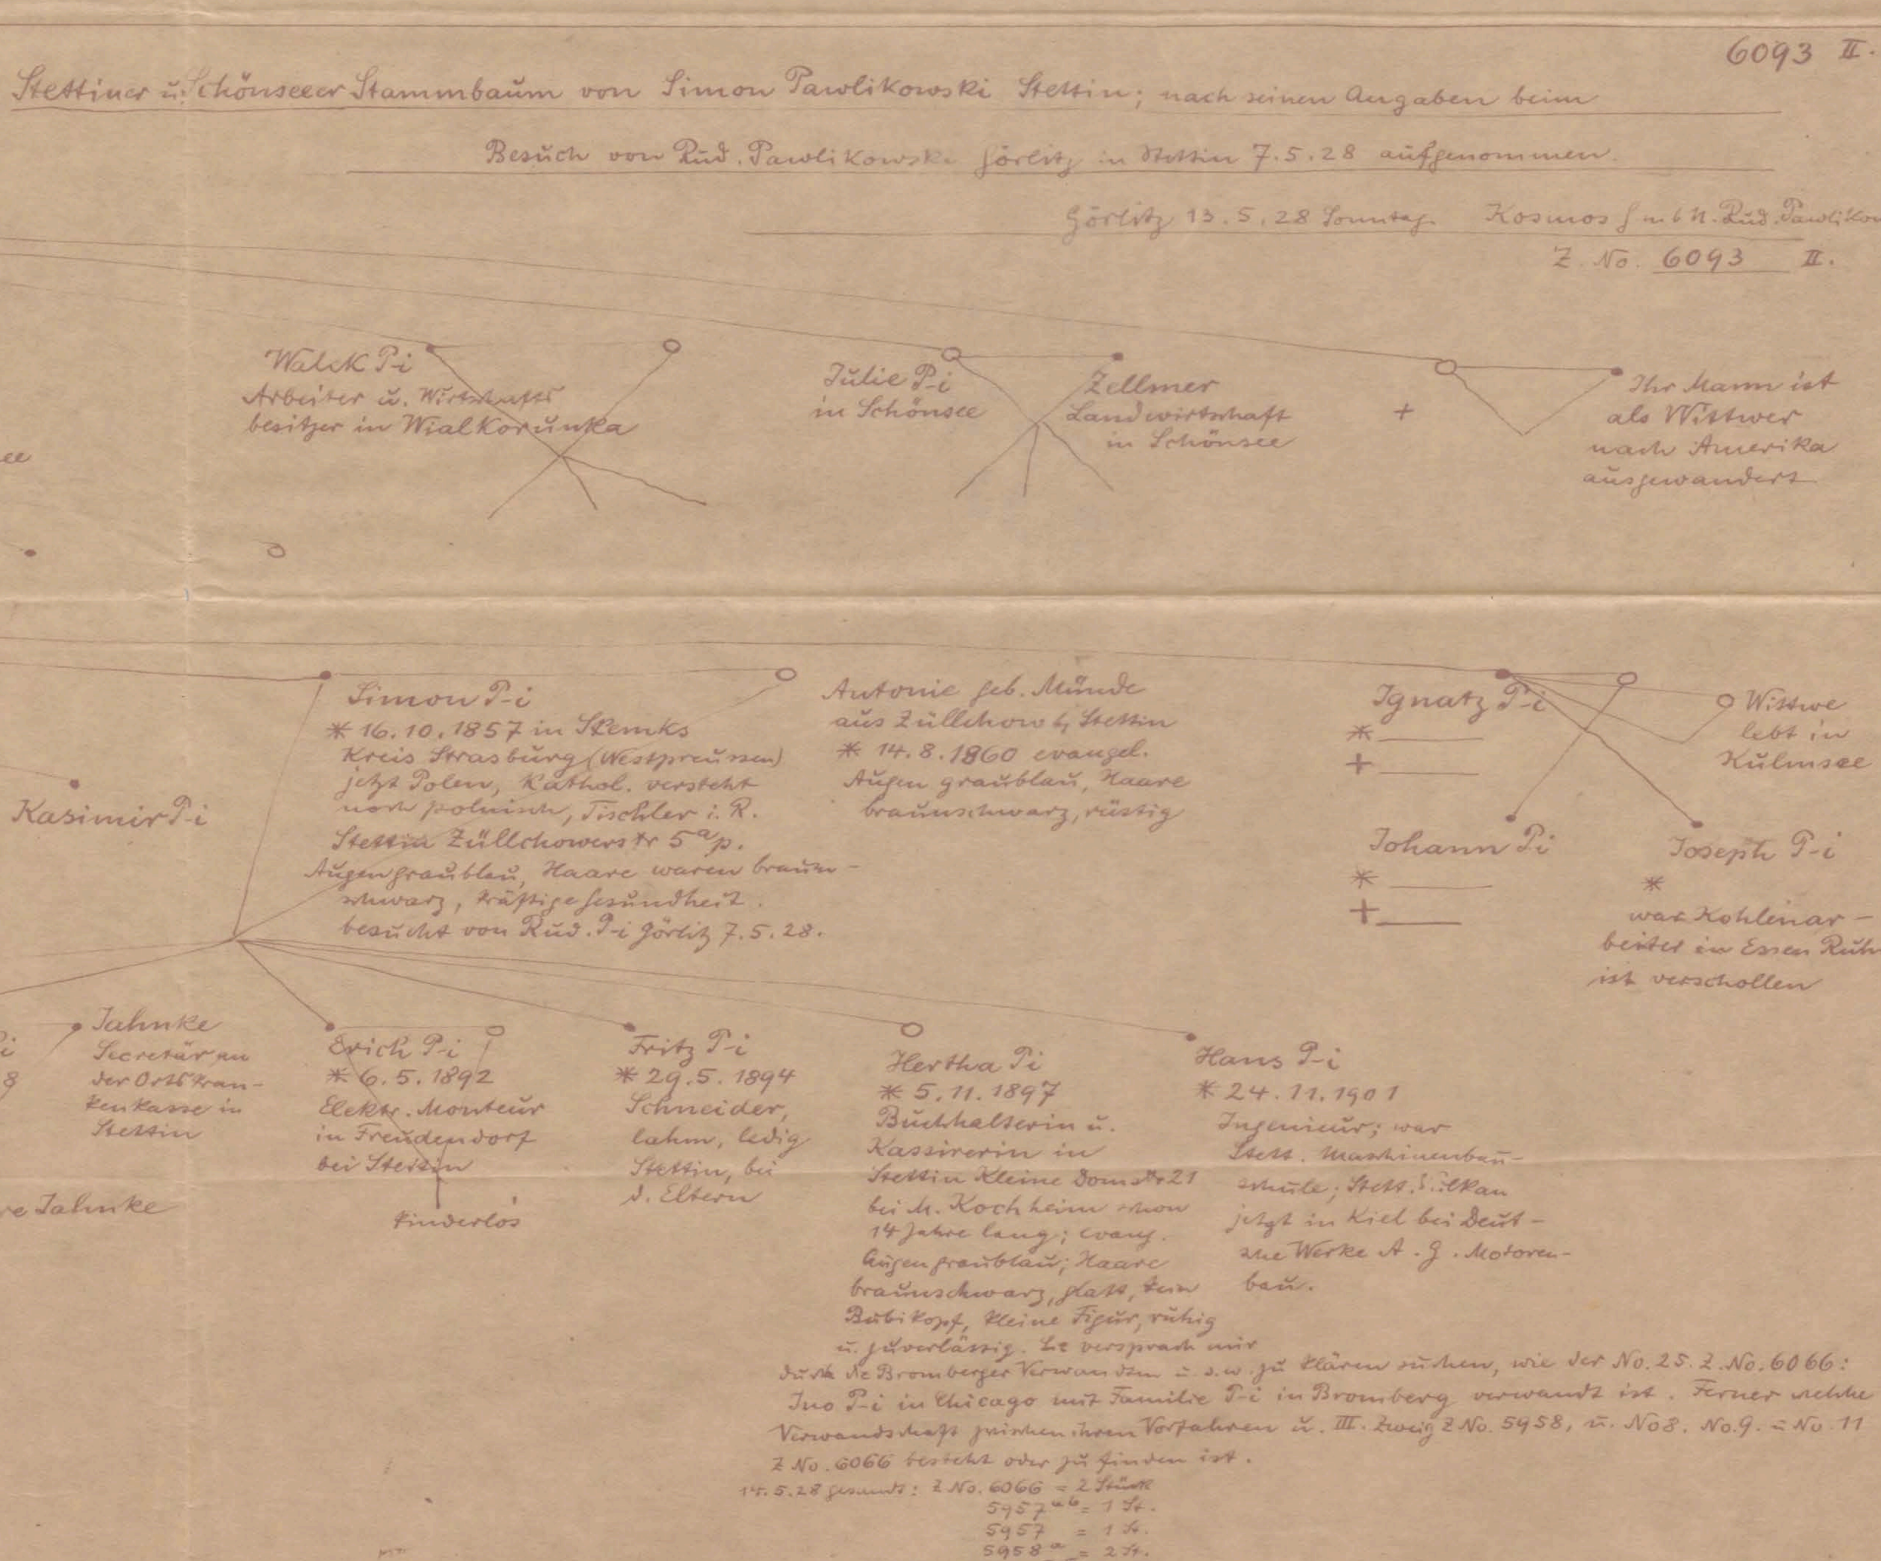 6093 II.
Stettiner u. Schönseeer Stammbaum von Simon Pawlikowski Stettin; nach seinen Angaben beim
Besuch von Rud. Pawlikowski Görlitz in Stettin 7.5.28 aufgenommen.
Görlitz 13.5.28 Sonntag. Kosmos G m b H. Rud. Pawlikow
Z. No. 6093 II.
Walek P-i
Arbeiter u. Wirtschafts
besitzer in Wialkorunka
Julie P-i
in Schönsee
Zellmer
Landwirtschaft
in Schönsee
+
Ihr Mann ist
als Wittwer
nach Amerika
ausgewandert
ee
Kasimir P-i
Simon P-i
* 16.10.1857 in
Kreis Strasburg (Westpreussen)
jetzt Polen, Kathol. versteht
noch polnisch, Tischler i. R.
Stettin Züllchowerstr 5ª p.
Augen graublau, Haare waren braun-
schwarz, kräftige Gesundheit.
besucht von Rud. P-i Görlitz 7.5.28.
Antonie geb. Münde
aus Züllchow b/ Stettin
* 14.8.1860 evangel.
Augen graublau, Haare
braunschwarz, rüstig
Ignatz P-i
*
+
Wittwe
lebt in
Kulmsee
Johann Pi
*
+
Joseph P-i
*
war Kohlenar-
beiter in Essen Ruhr
ist verschollen
i
8
Jahnke
Secretär an
der Ortskran-
kenkasse in
Stettin
re Jahnke
Erich P-i
* 6.5.1892
Elektr. Monteur
in Freudendorf
bei Stettin
kinderlos
Fritz P-i
* 29.5.1894
Schneider,
lahm, ledig
Stettin, bei
d. Eltern
Hertha Pi
* 5.11.1897
Buchhalterin u.
Kassirerin in
Stettin Kleine Domstr 21
bei M. Kochheim schon
14 Jahre lang; evang.
Augen graublau; Haare
braunschwarz, glatt, kein
Bubikopf, kleine Figur, ruhig
u. zuverlässig. Sie versprach mir
durch die Bromberger Verwandten u.s.w. zu klären suchen, wie der No. 25. Z. No. 6066:
Jno P-i in Chicago mit Familie P-i in Bromberg verwandt ist. Ferner welche
Verwandschaft zwischen ihren Vorfahren u. III. Zweig Z No. 5958, u. No 8. No. 9. u No. 11
Z No. 6066 besteht oder zu finden ist.
14.5.28 gesandt: Z No. 6066 = 2 Stück
5957 ab = 1 St.
5957 = 1 St.
5958 a = 2 St.
Hans P-i
* 24.11.1901
Ingenieur; war
Stett. Maschinenbau-
schule; Stett. Vulkan
jetzt in Kiel bei Deut-
sche Werke A.G. Motoren-
bau.